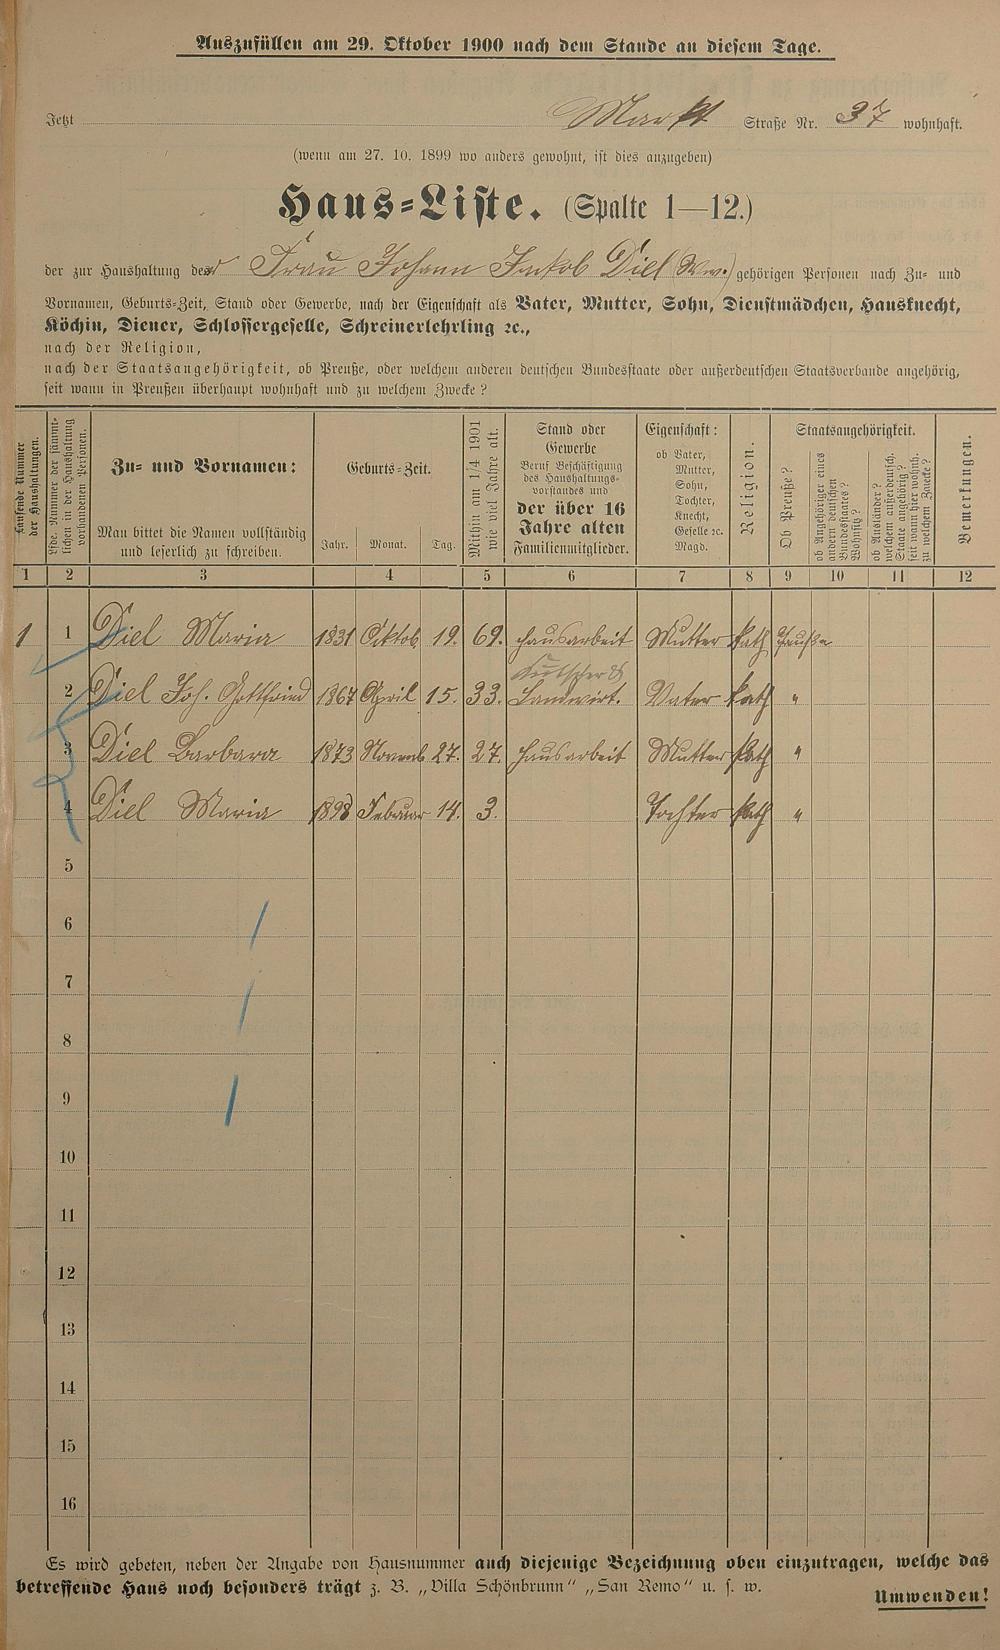 Auszufüllen am 29. Oktober 1900 nach dem Stande an diesem Tage.
Jetzt Markt Straße Nr. 37 wohnhaft.
(wenn am 27. 10. 1899 wo anders gewohnt, ist dies anzugeben)
Haus=Liste. (Spalte 1—12.)
der zur Haushaltung der Frau Johann Jakob Diel (Ww.) gehörigen Personen nach Zu= und
Vornamen, Geburts=Zeit, Stand oder Gewerbe, nach der Eigenschaft als Vater, Mutter, Sohn, Dienstmädchen, Hausknecht,
Köchin, Diener, Schlossergeselle, Schreinerlehrling ꝛc.,
nach der Religion,
nach der Staatsangehörigkeit, ob Preuße, oder welchem anderen deutschen Bundesstaate oder außerdeutschen Staatsverbande angehörig,
seit wann in Preußen überhaupt wohnhaft und zu welchem Zwecke?
Laufende Nummer
der Haushaltungen.
Lfde. Nummer der sämmt=
lichen in der Haushaltung
vorhandenen Personen.
Zu= und Vornamen:
Man bittet die Namen vollständig
und leserlich zu schreiben.
Geburts=Zeit.
Jahr. Monat. Tag.
Mithin am 1/4 1901
wie viel Jahre alt.
Stand oder
Gewerbe
Beruf Beschäftigung
des Haushaltungs=
vorstandes und
der über 16
Jahre alten
Familienmitglieder.
Eigenschaft:
ob Vater,
Mutter,
Sohn,
Tochter,
Knecht,
Geselle ꝛc.
Magd.
Religion.
Staatsangehörigkeit.
Ob Preuße?
ob Angehöriger eines
andern deutschen
Bundesstaates?
Wohnsitz?
ob Ausländer?
welchem außerdeutsch.
Staate angehörig?
seit wann hier wohnh.
zu welchem Zwecke?
Bemerkungen.
1 2 3 4 5 6 7 8 9 10 11 12
1 1 Diel Maria 1831 Oktob. 19. 69. Hausarbeit Mutter kath Preuße
Kutscher &
2 Diel Joh. Gottfried 1867 April 15. 33. Landwirt. Vater kath "
3 Diel Barbara 1873 Novemb 27. 27. Hausarbeit Mutter kath "
4 Diel Maria 1898 Februar 14. 3. Tochter kath "
5
6
7
8
9
10
11
12
13
14
15
16
Es wird gebeten, neben der Angabe von Hausnummer auch diejenige Bezeichnung oben einzutragen, welche das
betreffende Haus noch besonders trägt z. B. „Villa Schönbrunn" „San Remo" u. s. w.
Umwenden!